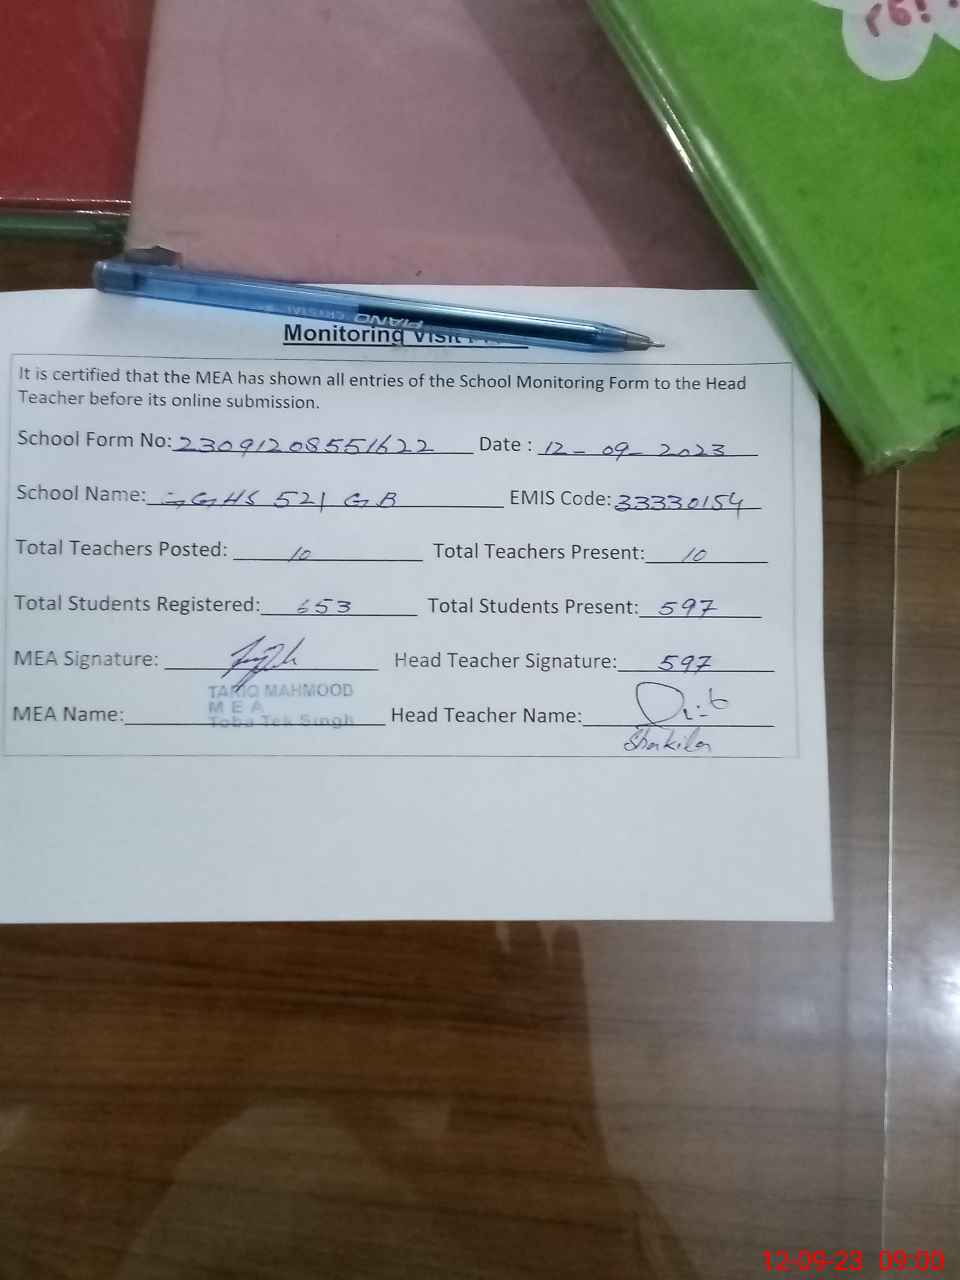 PIANO CRYSTAL
Monitoring Visit
It is certified that the MEA has shown all entries of the School Monitoring Form to the Head
Teacher before its online submission.
School Form No: 23091208551622 Date : 12-09-2023
School Name: GGHS 521 GB EMIS Code: 33330154
Total Teachers Posted: 10 Total Teachers Present: 10
Total Students Registered: 653 Total Students Present: 597
MEA Signature: Head Teacher Signature: 597
TARIQ MAHMOOD
M E A
MEA Name: Toba Tek Singh Head Teacher Name:
Shakila
12-09-23 09:00